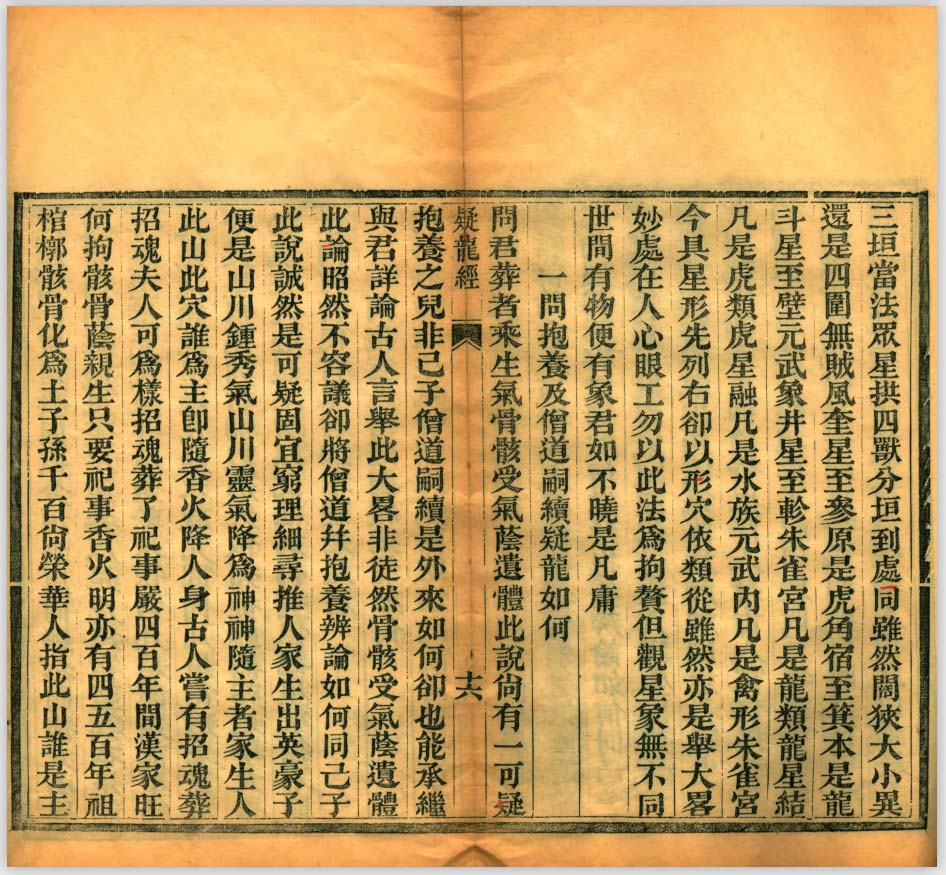 三垣當法眾星拱四獸分垣到處同雖然闊狹大小異
還是四圍無賊風奎星至參原是虎角宿至箕本是龍
斗星至壁元武象井星至軫朱雀宮凡是龍類龍星結
凡是虎類虎星融凡是水族元武內凡是禽形朱雀宮
今具星形先列右卻以形穴依類從雖然亦是舉大畧
妙處在人心眼工勿以此法爲拘贅但觀星象無不同
世間有物便有象君如不曉是凡庸
一問抱養及僧道嗣續疑龍如何
問君葬者乘生氣骨骸受氣蔭遺體此說尙有一可疑
疑龍經
十六
抱養之兒非己子僧道嗣續是外來如何卻也能承繼
與君詳論古人言舉此大畧非徒然骨骸受氣蔭遺體
此論昭然不容議卻將僧道幷抱養辨論如何同己子
此說誠然是可疑固宜窮理細尋推人家生出英豪子
便是山川鍾秀氣山川靈氣降爲神神隨主者家生人
此山此穴誰爲主卽隨香火降人身古人嘗有招魂葬
招魂夫人可爲樣招魂葬了祀事嚴四百年間漢家旺
何拘骸骨蔭親生只要祀事香火明亦有四五百年祖
棺槨骸骨化爲土子孫千百尙榮華人指此山誰是主